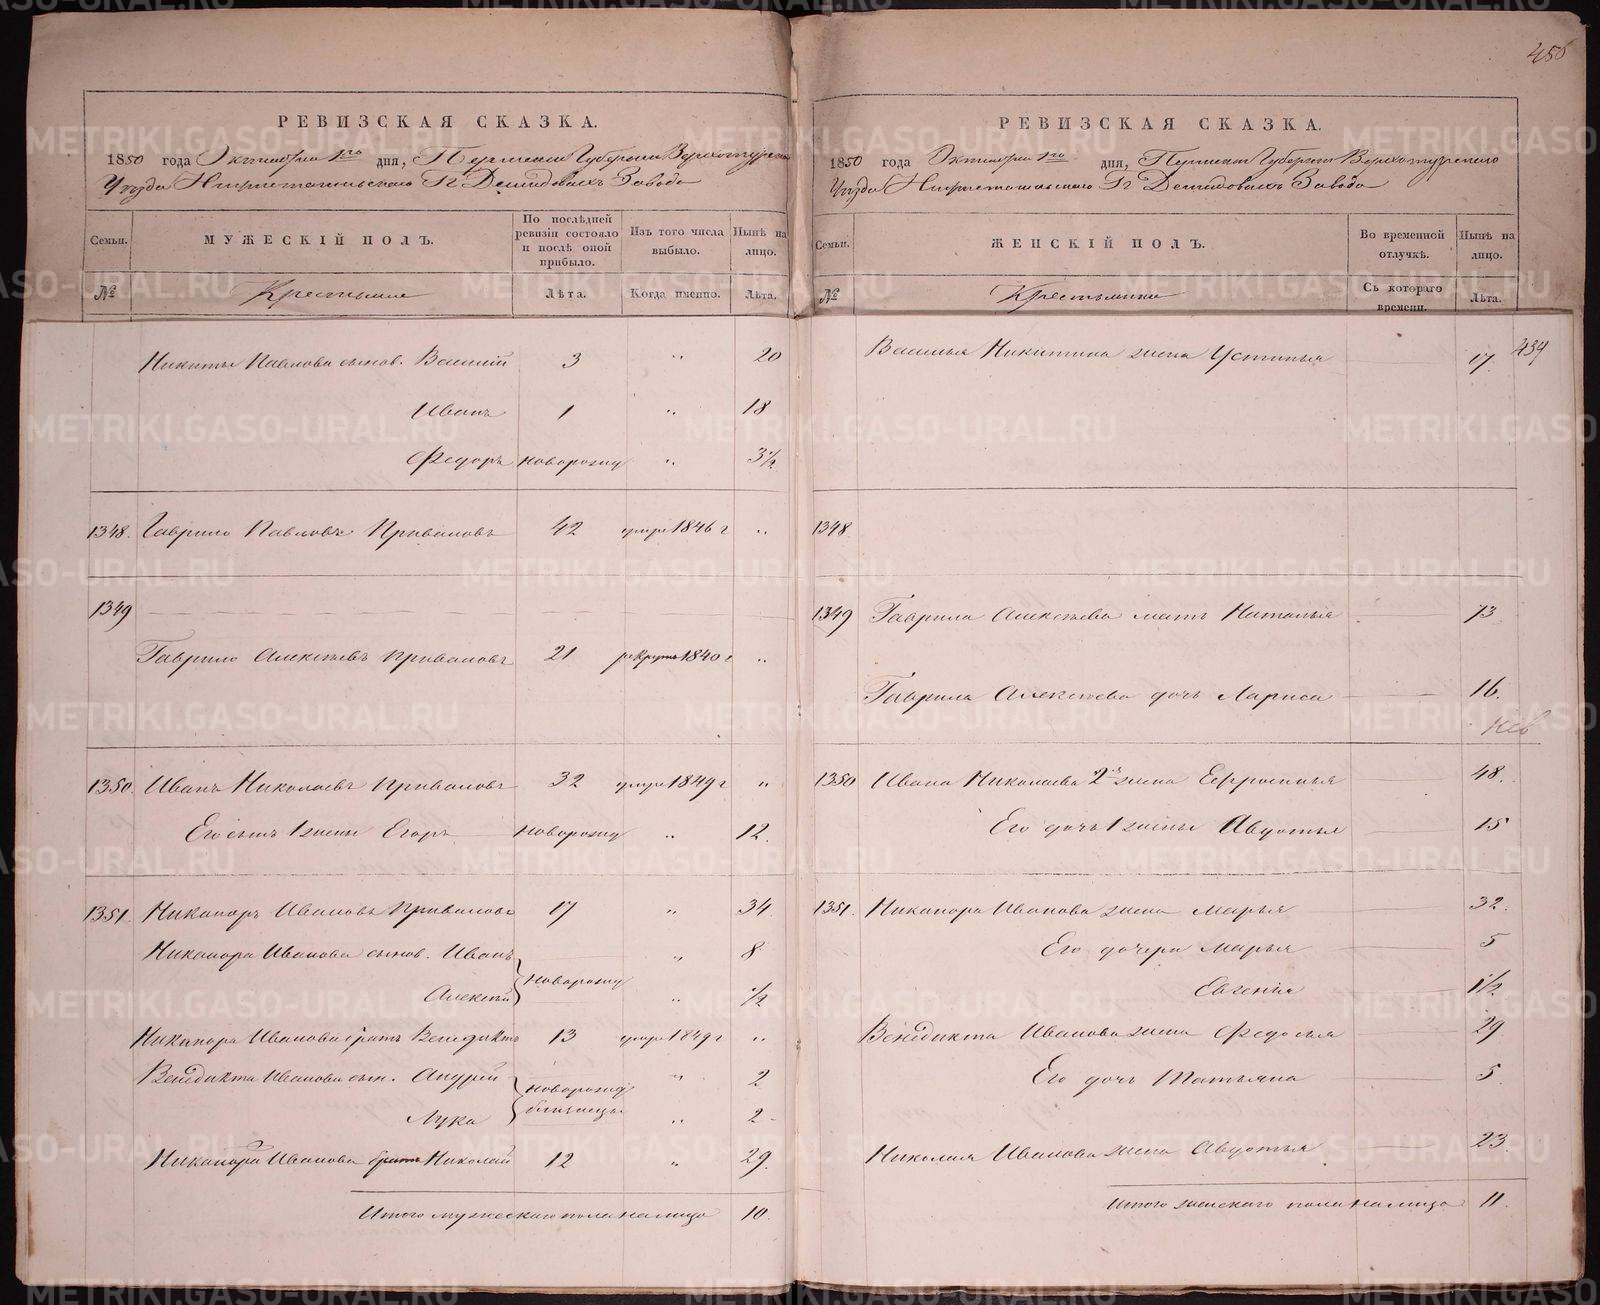 456
РЕВИЗСКАЯ СКАЗКА.
1850 года Октября 1го дня, Пермской Губернии Верхотурскаго
Уезда Нижнетагильскаго Гг Демидовыхъ Завода
Семьи. МУЖЕСКІЙ ПОЛЪ. По послѣдней ревизіи состояло и послѣ оной прибыло. Изъ того числа выбыло. Нынѣ на лицо.
№ Крестьяне Лѣта. Когда именно. Лѣта.
Никиты Павлова сынов. Василій 3 " 20
Иванъ 1 " 18
Федоръ новорожд " 3½
1348. Гаврило Павловъ Приваловъ 42 умре 1846 г "
1349
Гаврило Алексѣевъ Приваловъ 21 рекрутъ 1840 г "
1350. Иванъ Николаевъ Приваловъ 32 умре 1849 г "
Его сынъ 1 жены Егоръ новорожд " 12.
1351. Никаноръ Ивановъ Приваловъ 17 " 34
Никанора Иванова сынов. Иванъ новорожд " 8
Алексѣй " ½
Никанора Иванова братъ Венедиктъ 13 умре 1849 г "
Венедикта Иванова сын. Андрей новорожд близнецы " 2
Лука " 2
Никанора Иванова братъ Николай 12 " 29.
Итого мужескаго пола на лицо 10.
РЕВИЗСКАЯ СКАЗКА.
1850 года Октября 1го дня, Пермской Губерніи Верхотурскаго
Уезда Нижнетагильскаго Гг Демидовыхъ Завода
Семьи. ЖЕНСКІЙ ПОЛЪ. Во временной отлучкѣ. Нынѣ на лицо.
№ Крестьянки Съ котораго времени. Лѣта.
Василья Никитина жена Устинья 17. 434
1348.
1349 Гаврила Алексѣева мать Наталья 73
Гаврила Алексѣева дочь Лариса 16.
1350 Ивана Николаева 2я жена Ефросинья 48.
Его дочь 1 жены Авдотья 15
1351. Никанора Иванова жена Марья 32.
Его дочери Марья 5
Евгенія 1½
Венедикта Иванова жена Федосья 29
Его дочь Татьяна 5.
Николая Иванова жена Авдотья 23.
Итого женскаго пола на лицо 11.
METRIKI.GASO-URAL.RU